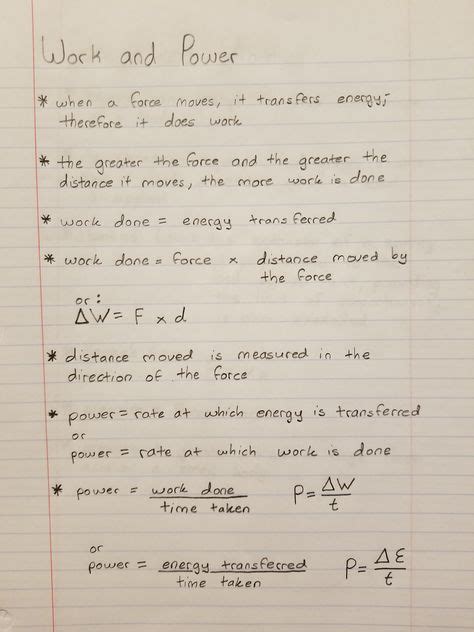 Work and Power
* when a force moves, it transfers energy;
therefore it does work
* the greater the force and the greater the
distance it moves, the more work is done
* work done = energy transferred
* work done = force × distance moved by
the force
or:
ΔW = F × d
* distance moved is measured in the
direction of the force
* power = rate at which energy is transferred
or
power = rate at which work is done
* power = work done / time taken P = ΔW / t
or
power = energy transferred / time taken P = ΔE / t